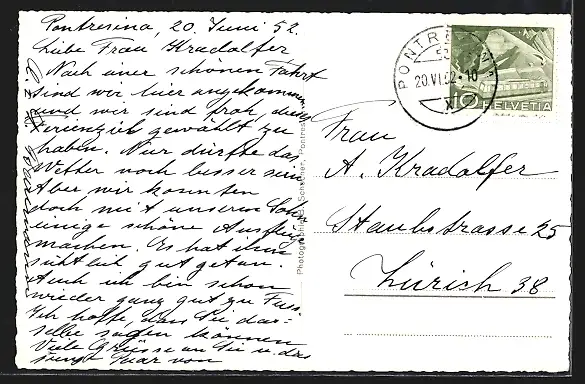 Pontresina, 20. Juni 52.
Liebe Frau Kradolfer
Nach einer schönen Fahrt
sind wir hier angekommen
und wir sind froh, dieses
Ferienziel gewählt zu
haben. Nur dürfte das
Wetter noch besser sein
Aber wir konnten
doch mit unserem Sohn
einige schöne Ausflüge
machen. Es hat ihm
sichtlich gut getan.
Auch ich bin schon
wieder ganz gut zu Fuss.
Ich hoffe, dass Sie das-
selbe sagen können
Viele Grüsse an Sie u. das
junge Paar von
Photographie A. Pontres
PONTRESINA
20.VI.52-10
X
10 HELVETIA
Frau
A. Kradolfer
Staubstrasse 25
Zürich 38